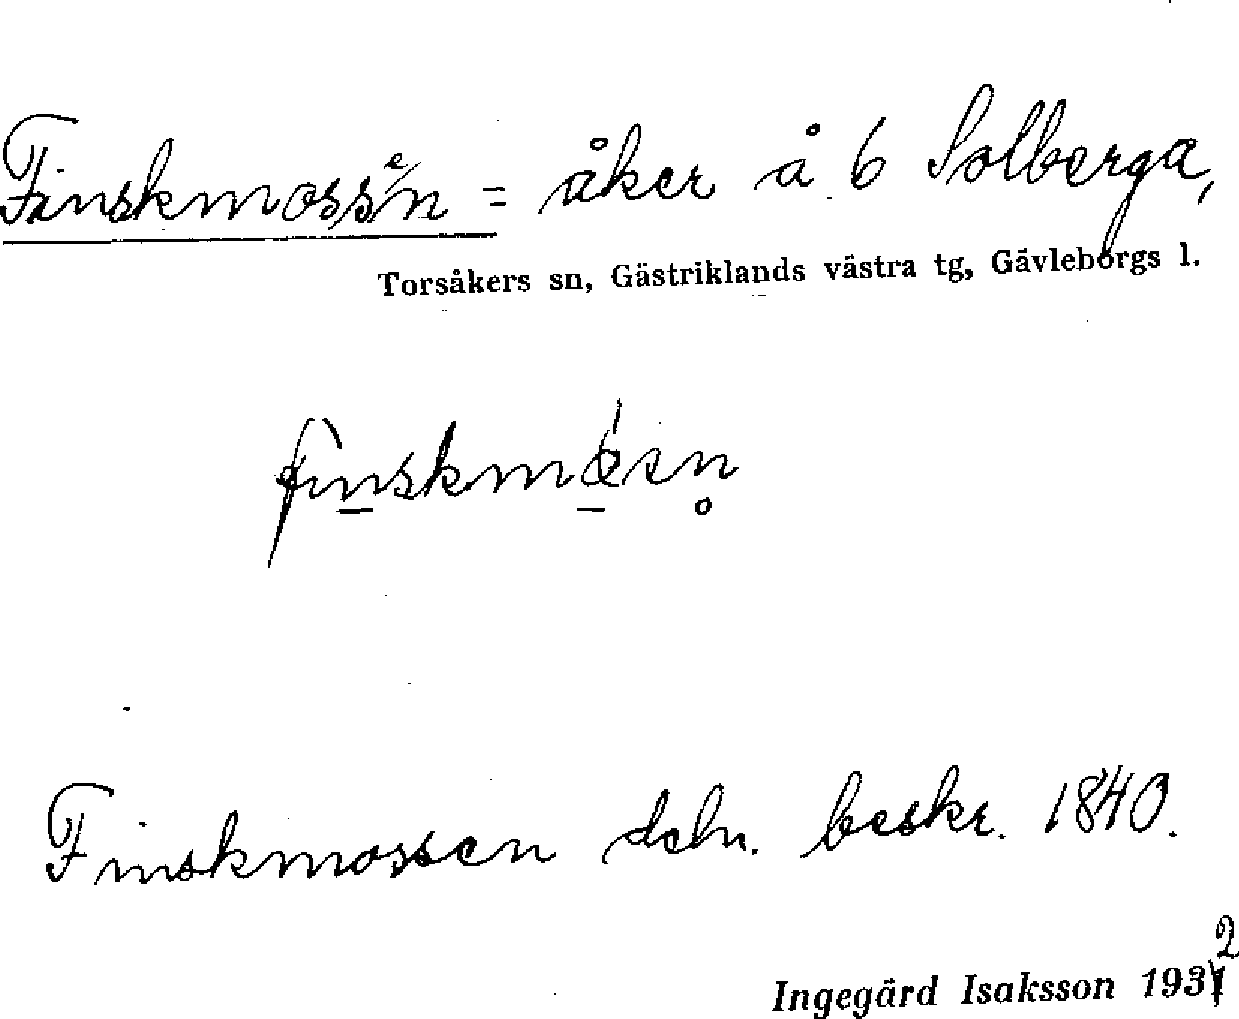 Finskmossen = åker å 6 Solberga,
Torsåkers sn, Gästriklands västra tg, Gävleborgs l.
Finskmossen deln. beskr. 1840.
Ingegärd Isaksson 1932